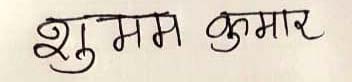 शुमम कुमार